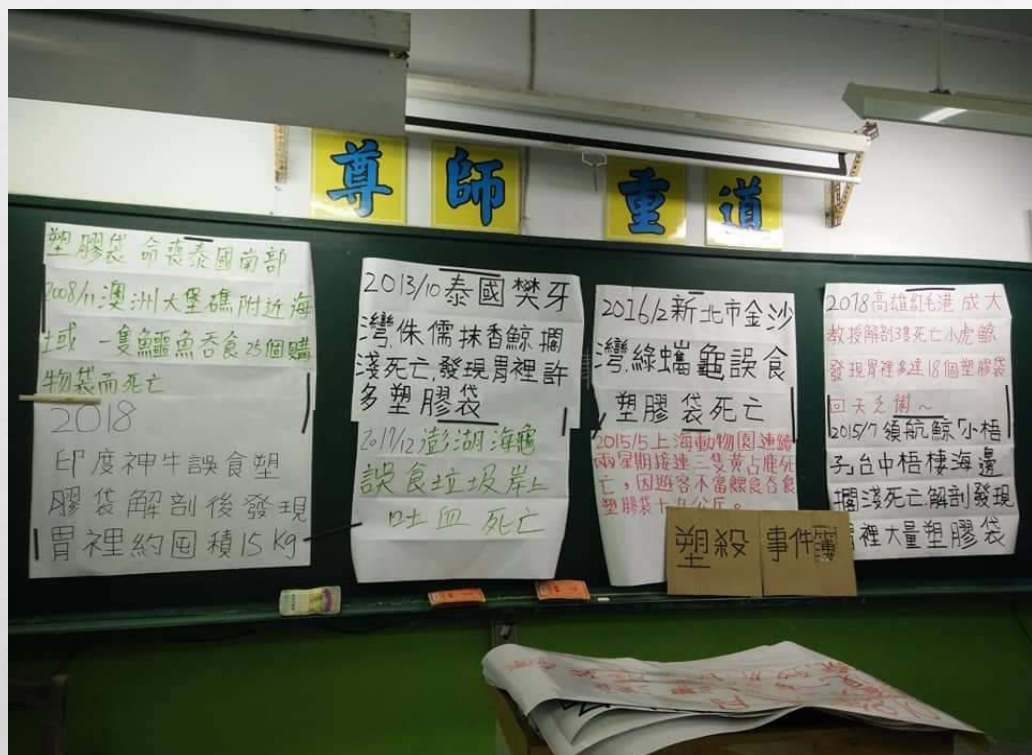 尊師重道
塑膠袋 命喪泰國南部
2008/11澳洲大堡礁附近海
域 一隻鱷魚吞食25個購
物袋而死亡
2018
印度神牛誤食塑
膠袋解剖後發現
胃裡約囤積15Kg
2013/10泰國樊牙
灣.侏儒抹香鯨擱
淺死亡,發現胃裡許
多塑膠袋
2017/12澎湖海龜
誤食垃圾岸上
吐血死亡
2016/2新北市金沙
灣.綠蠵龜誤食
塑膠袋死亡
2015/5上海動物園連續
兩星期接連三隻黃占鹿死
亡,因遊客不當餵食吞食
塑膠袋十幾公斤。
塑殺 事件簿
2018高雄紅毛港成大
教授解剖3隻死亡小虎鯨
發現胃裡多達18個塑膠袋
回天乏術~
2015/7須航鯨「小梧
子」台中梧棲海邊
擱淺死亡.解剖發現
裡大量塑膠袋